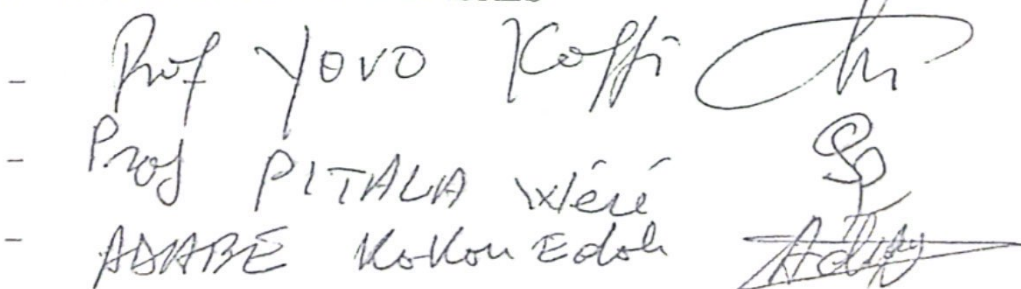 - Prof YOVO Koffi
- Prof PITALA Wéré
- Kokou Edoh